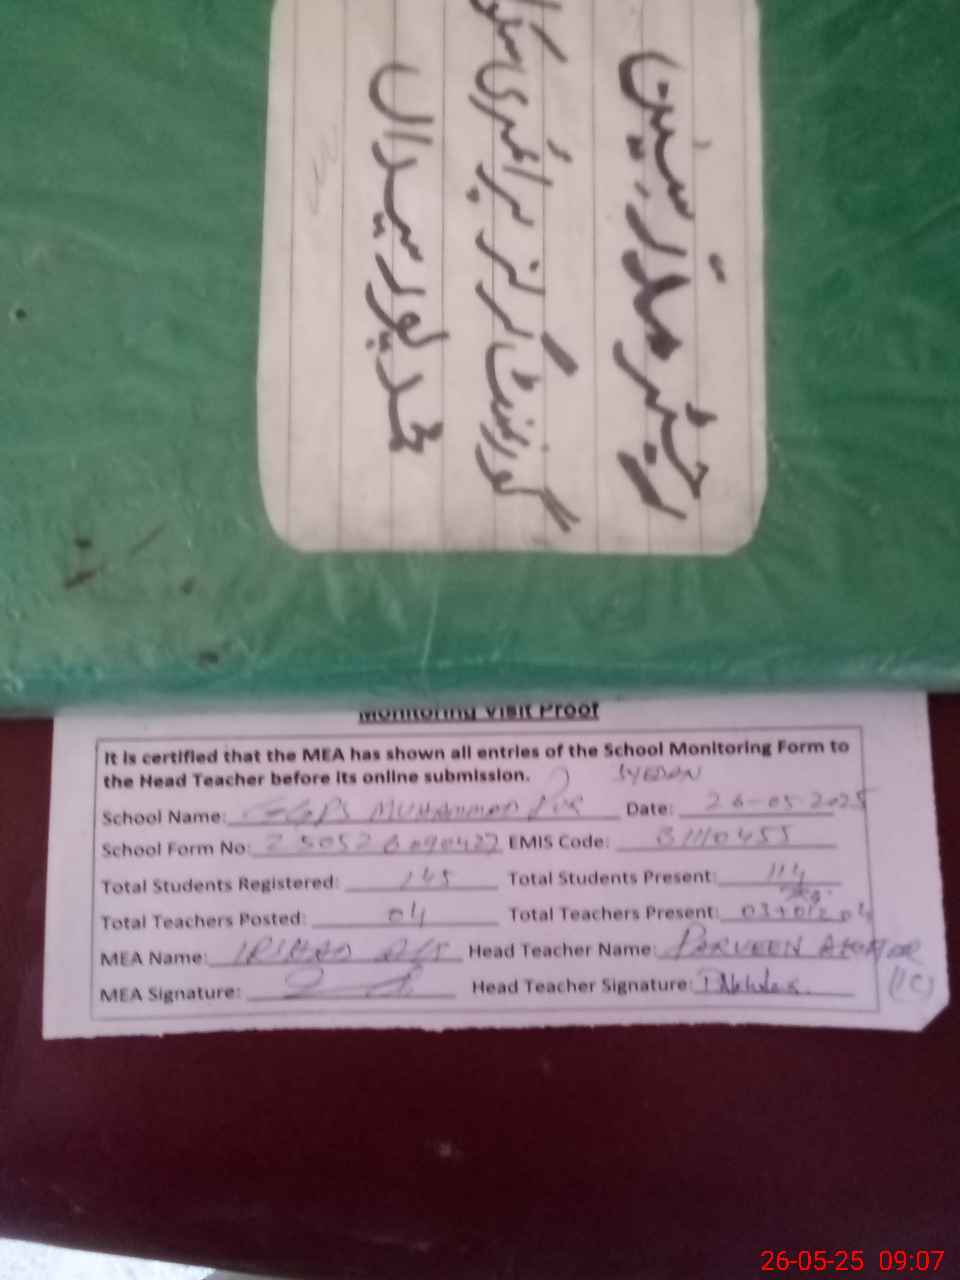 رجسٹر معائنہ مدرسین
گورنمنٹ گرلز پرائمری سکول
محمد پور سیداں
Monitoring Visit Proof
It is certified that the MEA has shown all entries of the School Monitoring Form to
the Head Teacher before its online submission.
SYEDAN
School Name: GGPS MUHAMMAD PUR Date: 26-05-2025
School Form No: EMIS Code: 31110455
Total Students Registered: 145 Total Students Present: 114
Total Teachers Posted: 04 Total Teachers Present: 03+01
MEA Name: Head Teacher Name: PARVEEN AKHTAR
(IC)
MEA Signature: Head Teacher Signature:
26-05-25 09:07